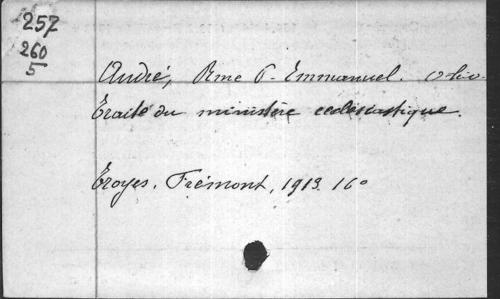 257
260
5
André, Rme P. Emmanuel.
Traité du ministère ecclésiastique.
Troyes, Frémont, 1913. 16°